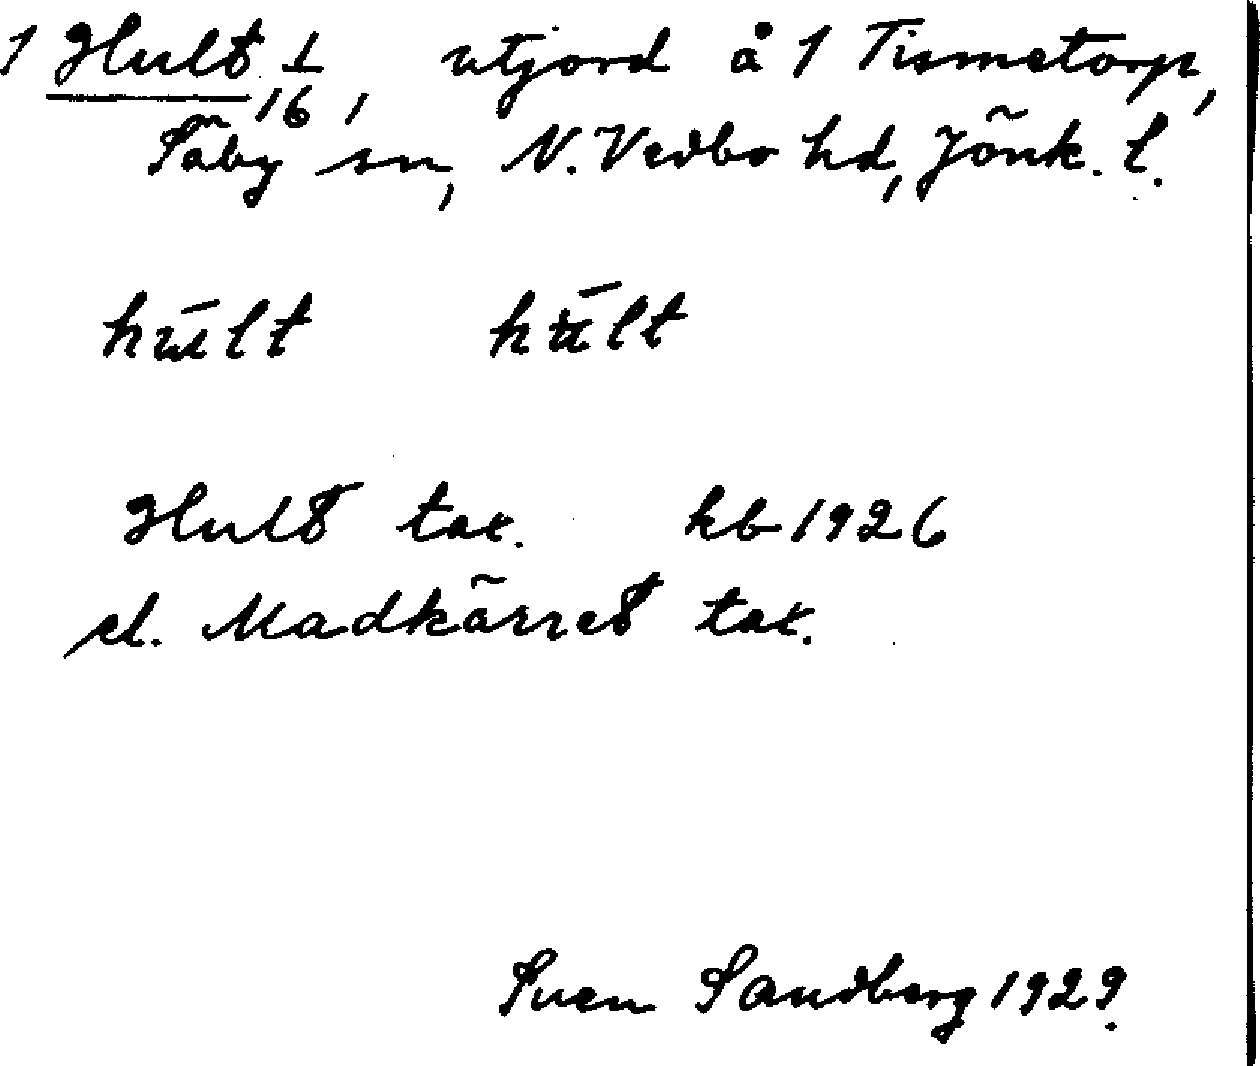 1 Hult 1/16, utjord å 1 Tismetorp,
Säby sn, N. Vedbo hd, Jönk. l.
hu̇́lt hu̇́lt
Hult tax. hb 1926
el. Madkärret tax.
Sven Sandberg 1929.